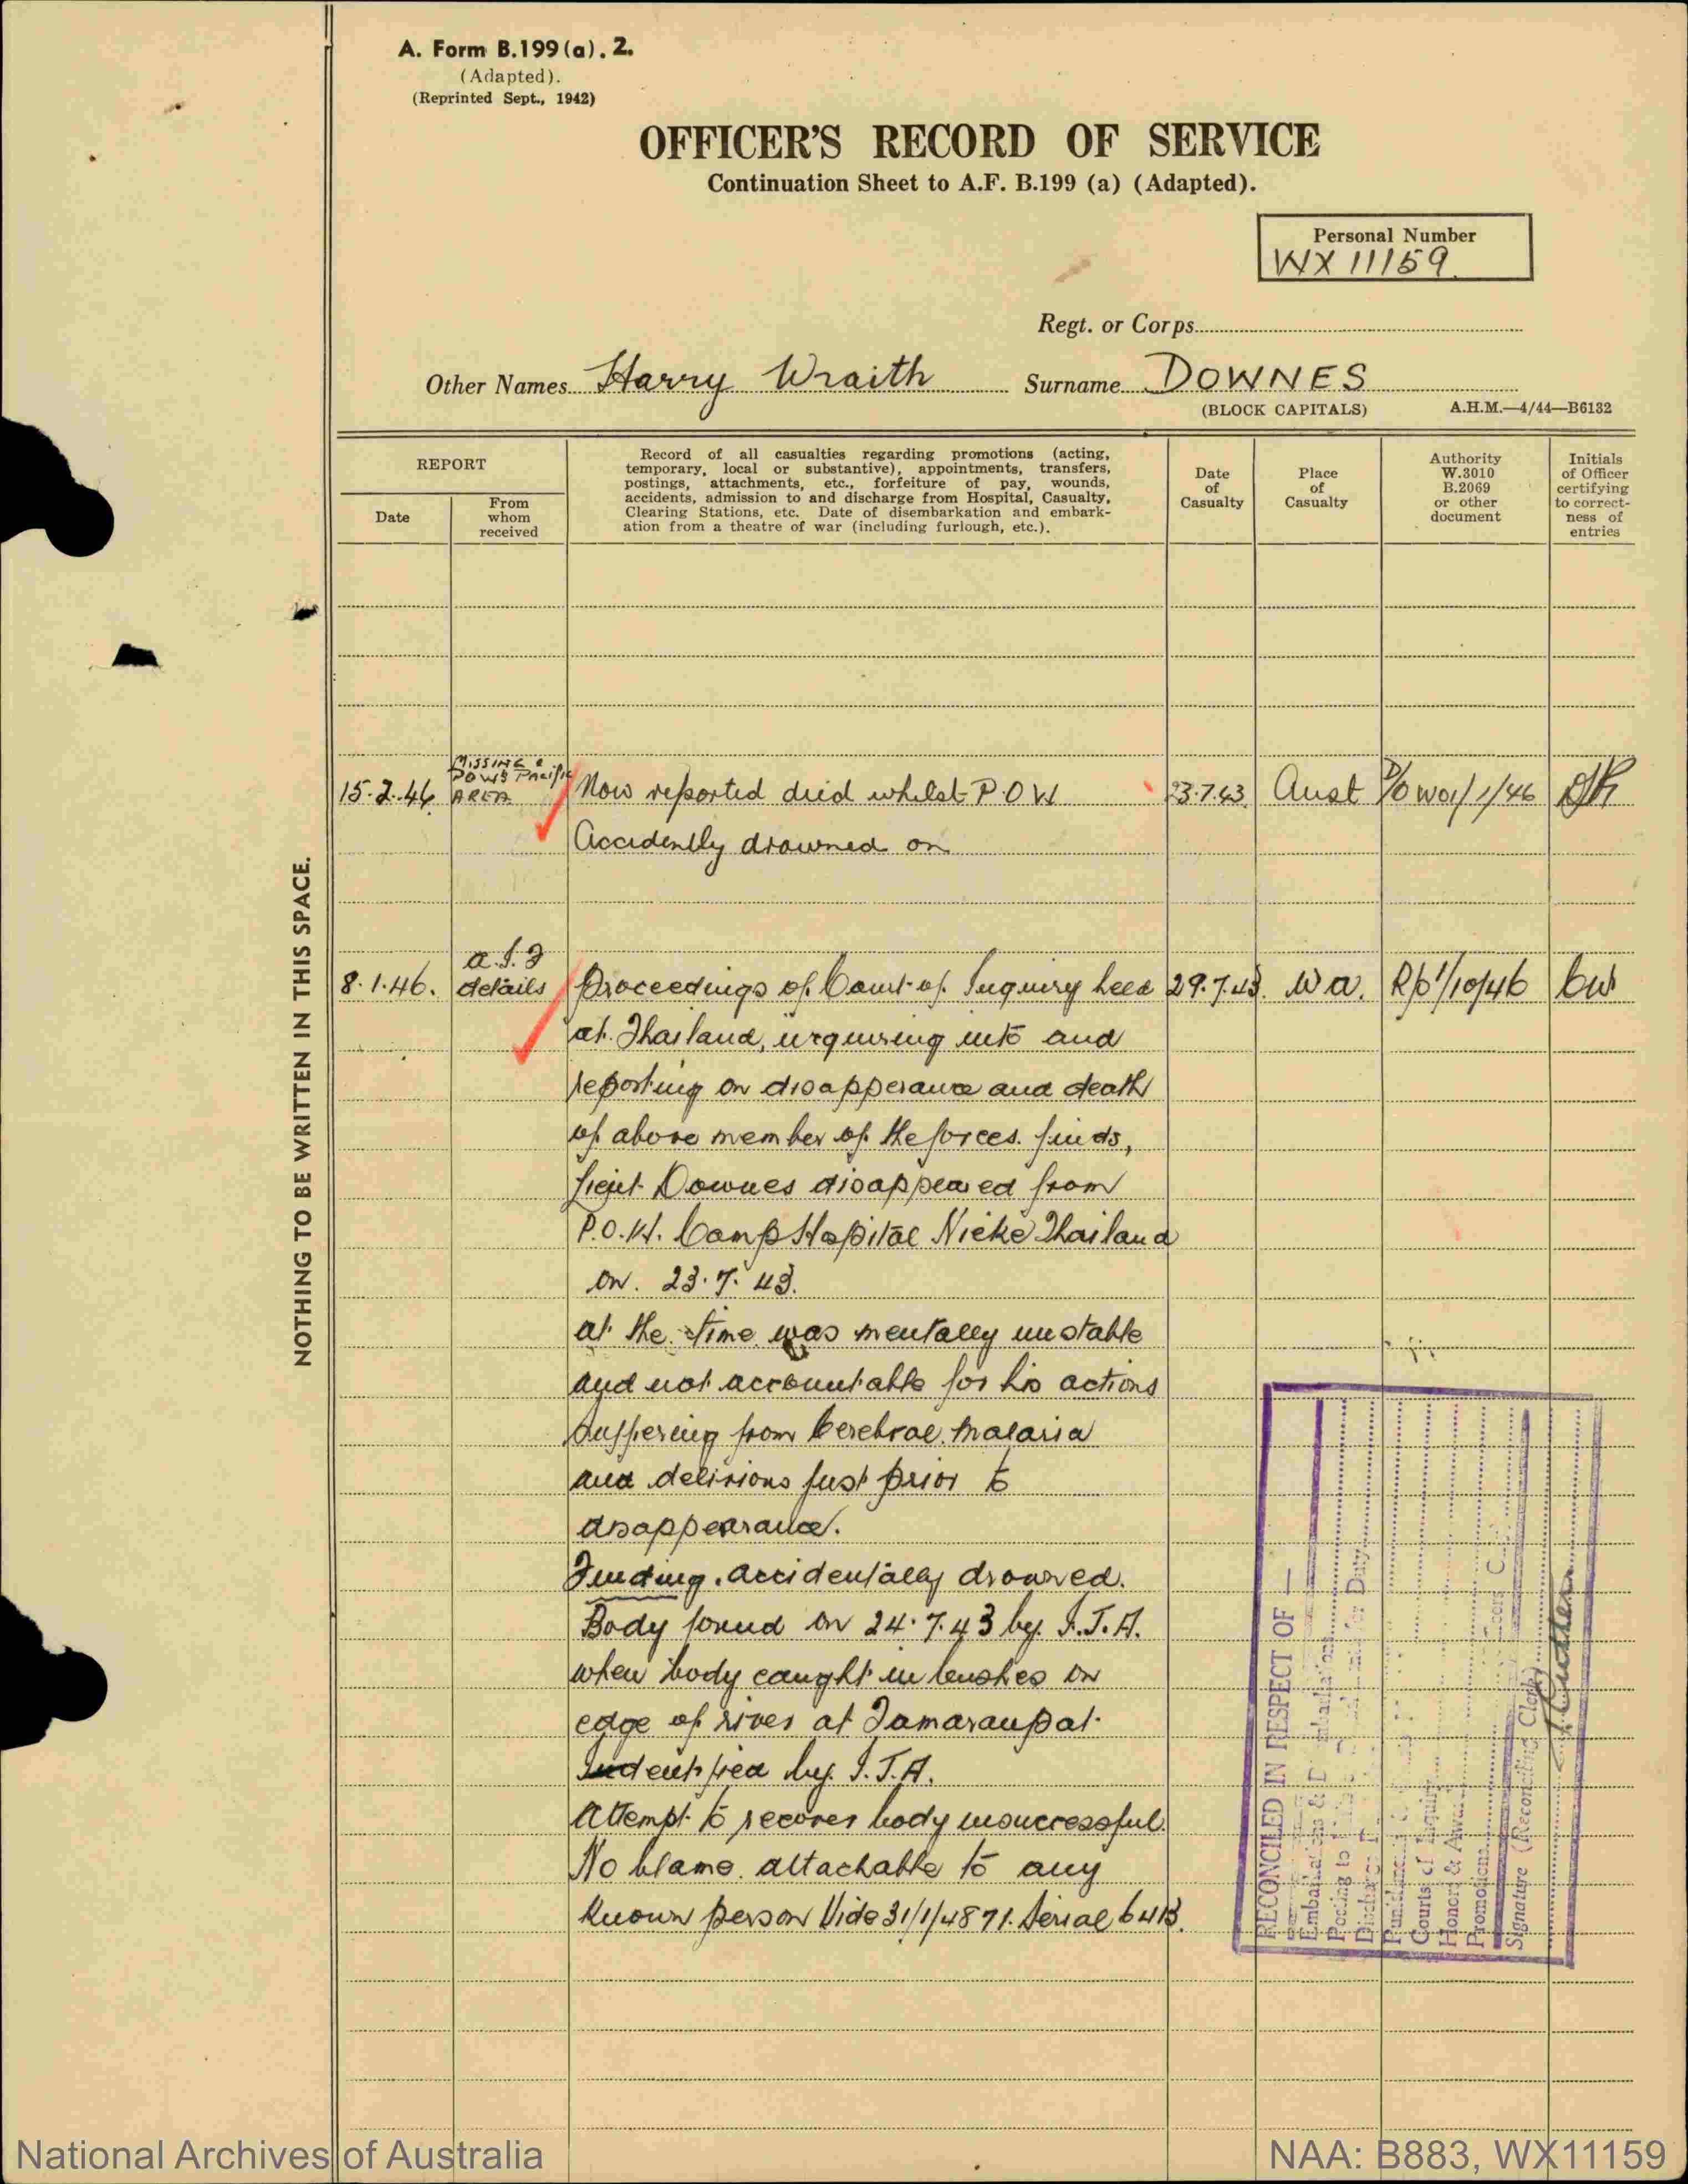 A. Form B.199 (a). 2.
(Adapted).
(Reprinted Sept., 1942)
OFFICER'S RECORD OF SERVICE
Continuation Sheet to A.F. B.199 (a) (Adapted).
Personal Number
WX 11159
Regt. or Corps
Other Names Harry Wraith Surname DOWNES
(BLOCK CAPITALS) A.H.M.—4/44—B6132
REPORT
Date
From
whom
received
Record of all casualties regarding promotions (acting,
temporary, local or substantive), appointments, transfers,
postings, attachments, etc., forfeiture of pay, wounds,
accidents, admission to and discharge from Hospital, Casualty,
Clearing Stations, etc. Date of disembarkation and embark-
ation from a theatre of war (including furlough, etc.).
Date
of
Casualty
Place
of
Casualty
Authority
W.3010
B.2069
or other
document
Initials
of Officer
certifying
to correct-
ness of
entries
MISSING &
POWS Pacific
15.2.46 AREA Now reported died whilst P.O.W 23.7.43 Aust
Accidently drowned on
8.1.46. details Proceedings of Court of Inquiry held 29.7.43. W a.
at Thailand, inquiring into and
reporting on disapperance and death
of above member of the forces. finds,
Lieut Downes disappeared from
P.O.W. Camp Hospital Nieke Thailand
on. 23.7.43.
at the time was mentally unstable
and not accountable for his actions
suffering from Cerebral Malaria
and delirious just prior to
disappearance.
Finding. accidentally drowned.
Body found on 24.7.43 by. I.J.A.
when body caught in bushes on
edge of river at Tamaranpat.
by. I.J.A.
Attempt to recover body unsuccessful.
No blame. attachable to any
known person Vide 31/1/4871. Serial 6413.
NOTHING TO BE WRITTEN IN THIS SPACE.
RECONCILED IN RESPECT OF —
Courts of Inquiry
Honors & Awards
Promotions
Signature (Reconciling Clerk)
National Archives of Australia
NAA: B883, WX11159